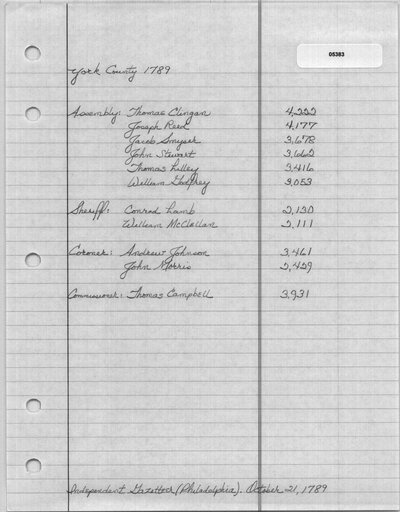 05383
York County 1789
Assembly: Thomas Clingan 4,222
Joseph Reed 4,177
Jacob Smyser 3,678
John Stewart 3,662
Thomas Lilley 3,416
William Godfrey 3,053
Sheriff: Conrad Laub 2,130
William McClellan 2,111
Coroner: Andrew Johnson 3,461
John Morris 2,429
Commissioner: Thomas Campbell 3,931
Independent Gazetteer (Philadelphia). October 21, 1789